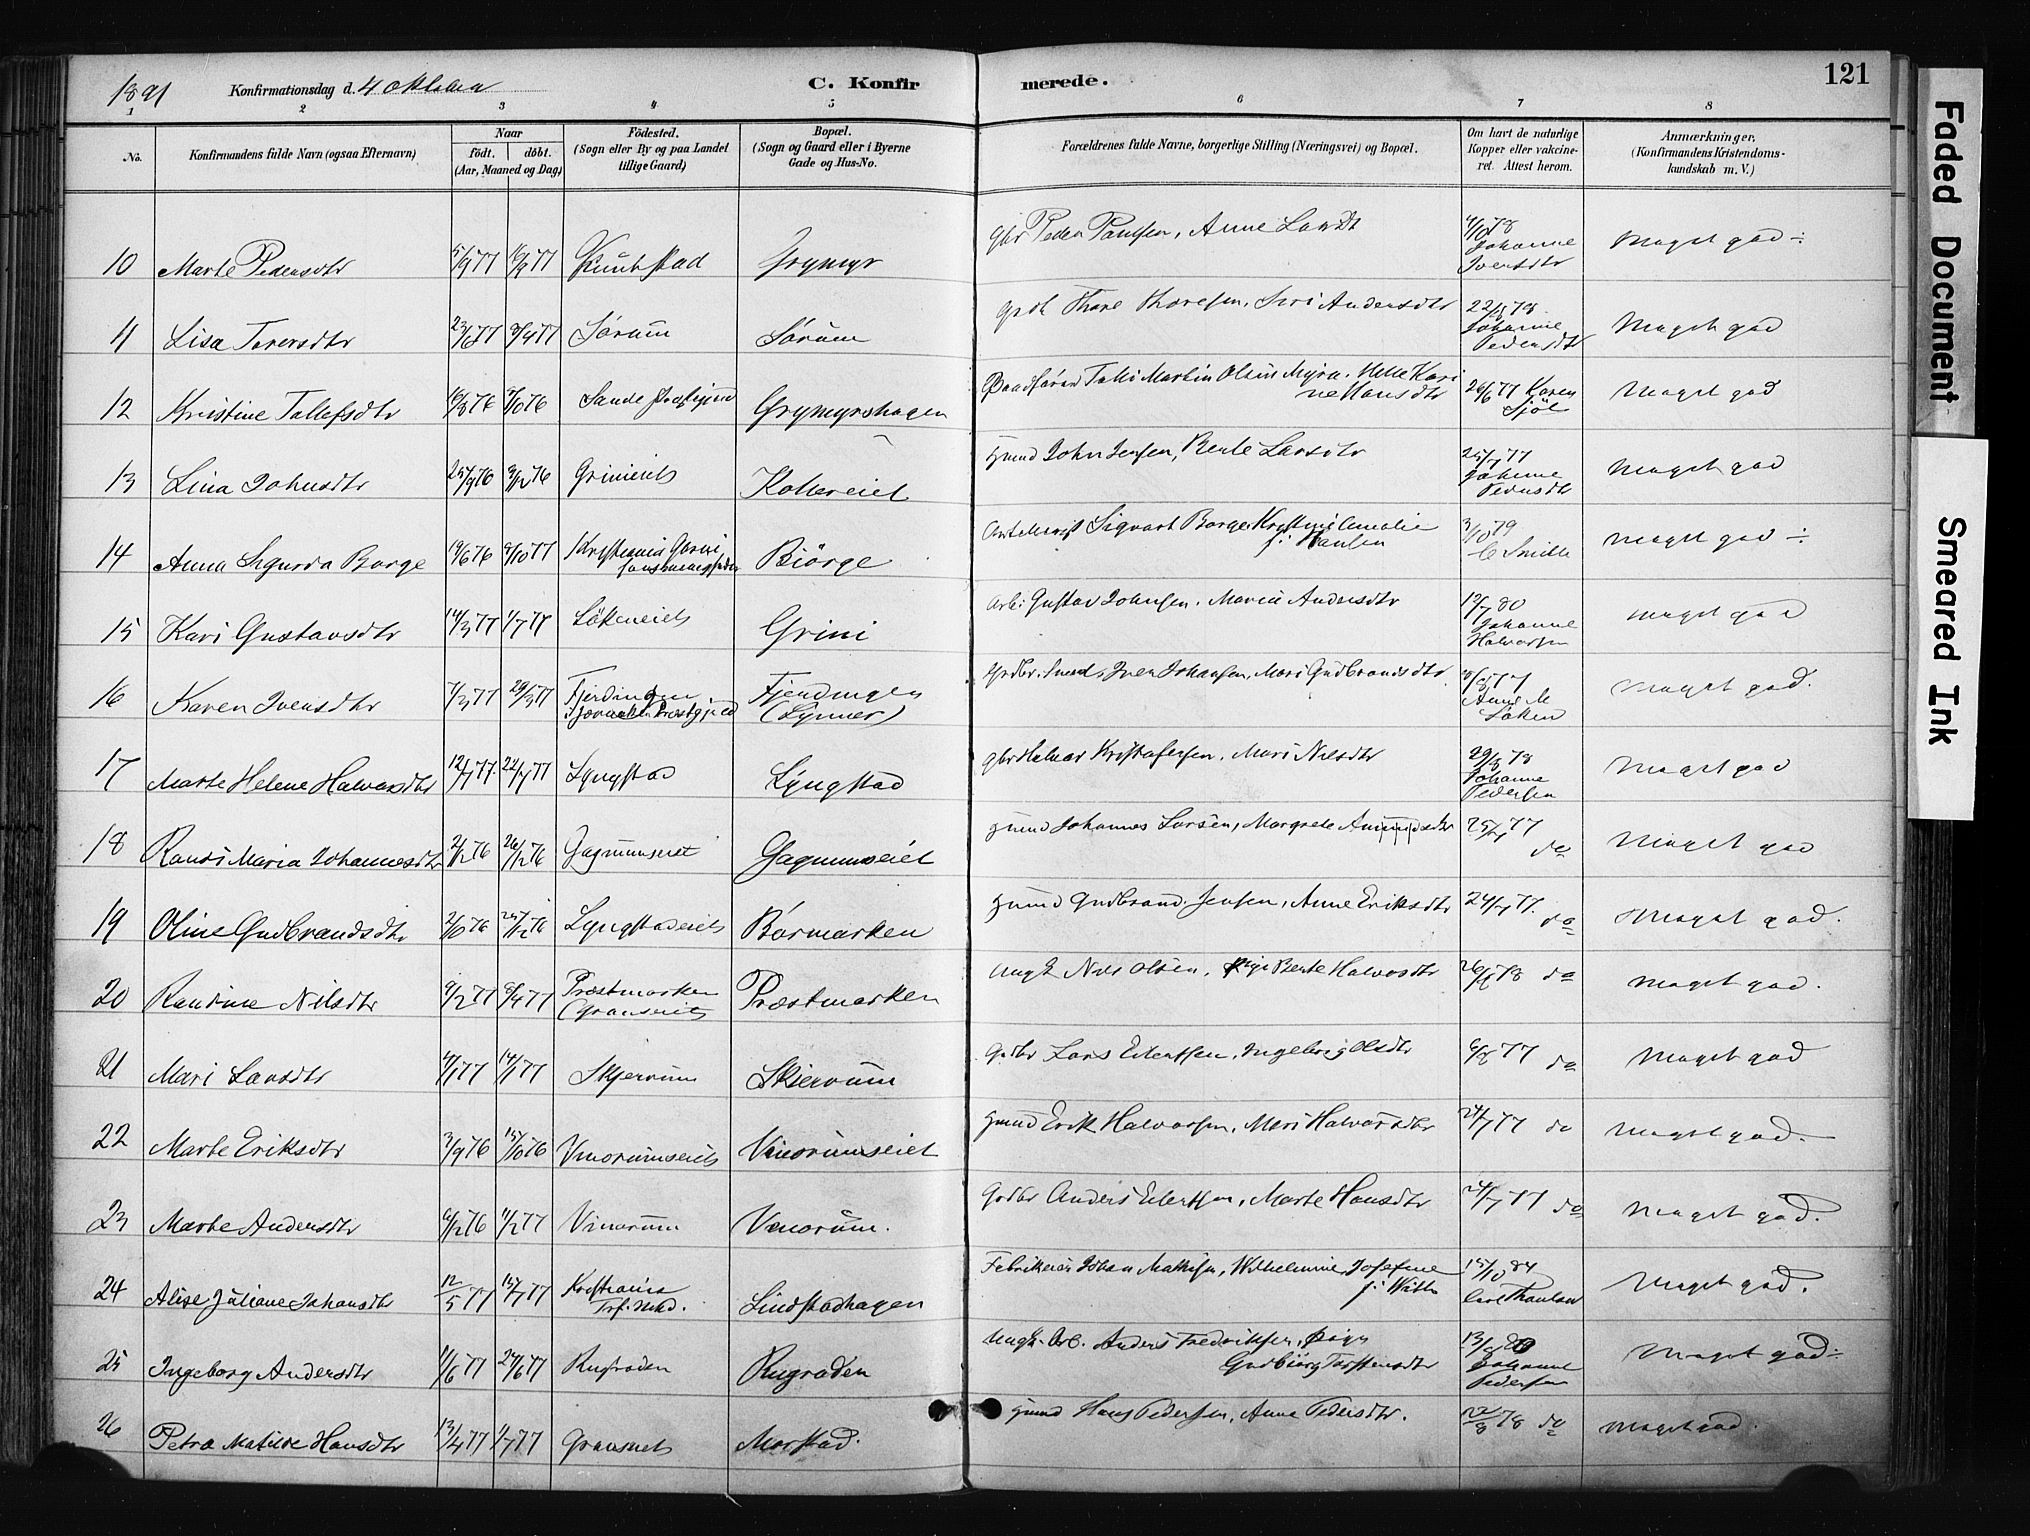 1891 Konfirmationsdag d. 4 oktober C. Konfirmerede. 121
1 2 3 4 5 6 7 8
No.
Konfirmandens fulde Navn (ogsaa Efternavn)
Naar
født. døbt.
(Aar, Maaned og Dag)
Fødested.
(Sogn eller By og paa Landet
tillige Gaard)
Bopæl.
(Sogn og Gaard eller i Byerne
Gade og Hus-No.
Forældrenes fulde Navne, borgerlige Stilling (Næringsvei) og Bopæl.
Om havt de naturlige
Kopper eller vakcine-
ret. Attest herom.
Anmærkninger.
(Konfirmandens Kristendoms-
kundskab m. V.)
10 Marte Pedersdtr 5/9 77 16/9 77 Grymyr Gbr Peder Paulsen, Anne Larsdt 4/10 78 Johanne Iversdtr Meget god ÷
11 Lisa Toresdtr Sørum Sørum Thore Thoresen, Siri Andersdtr 22/8 78 Johanne Pedersdtr Meget god
12 Kristine Tollefsdtr Sande Grymyrshagen Martin Olsen Myra, Karen Sjöl Meget god
13 Lina Johnsdtr 25/9 76 3/12 76 Grinieiet Kollereiet Husmd John Jensen, Berte Larsdtr 25/7 77 Johanne Pedersdtr Meget god
14 Anna Sigurda Borge 19/6 76 8/10 77 Kristiania Bjørge Sigvart Borge, Kristine Amalie f. Hansen 3/10 79 C Smith meget god ÷
15 Kari Gustavsdtr 14/3 77 1/7 77 Løkeneiet Grini Arb. Gustav Johnsen, Maria Andersdtr 12/7 80 Johanne Halvorsen meget god
16 Karen Iversdtr 7/3 77 29/3 77 Fjerdingen Jevnaker Prestgjeld Fjerdingen (Lynner) Grdbr. Smed, Iver Johansen, Mari Gudbrandsdtr Anne M Løken Meget god.
17 Marte Helene Halvorsdtr 22/7 77 Lyngstad Lyngstad Gbr Halvor Kristofersen, Mari Nilsdtr 29/8 78 Johanne Pedersen Meget god
18 Randi Maria Johannesdtr 2/12 76 26/12 76 Gagnumseiet Gagnumseiet Husmd Johannes Larsen, Margrete Amundsdtr 25/7 77 do Meget god
19 Oline Gudbrandsdtr 2/10 76 Lyngstadeiet Børmarken Husmd Gudbrand Jensen, Anne Eriksdtr 24/7 77. do Meget god.
20 Randine Nilsdtr 9/2 77 8/4 77 Præstmarken (Granseiet Præstmarken Ungk Nils Olsen, Pige Berte Halvorsdtr 26/8 78 do Meget god.
21 Mari Larsdtr 4/1 77 14/1 77 Skjervum Skjervum Grdbr Lars Eilertsen, Ingeborg Olsdtr 6/8 77 do Meget god
22 Marte Eriksdtr 3/9 76 15/10 76 Vinorumseiet Vinorumseiet Husmd Erik Halvorsen, Mari Halvorsdtr 24/7 77 do Meget god.
23 Marte Andersdtr 6/12 76 11/2 77 Vinorum Vinorum. Grdbr Anders Eilertsen, Marte Hansdtr 24/7 77 do Meget god.
24 Alise Juliane Johansdtr 12/5 77 15/7 77 Kristiania Trf. Mkd. Lindstadhagen Johan Mathisen, Wilhelmine Josefine f. Witth 15/10 84 Carl Thaulow Meget god.
25 Ingeborg Andersdtr 11/6 77 24/6 77 Rugraden Rugraden Ungk. Arb. Anders Fredriksen, pige Gudbjørg Torstensdtr 13/8 80 Johanne Pedersen Meget god ÷
26 Petra Matilde Hansdtr 13/4 77 1/7 77 Granseiet Morstad. Husmd Hans Pedersen, Anne Pedersdtr. 22/8 78 do Meget god.
Faded Document
Smeared Ink